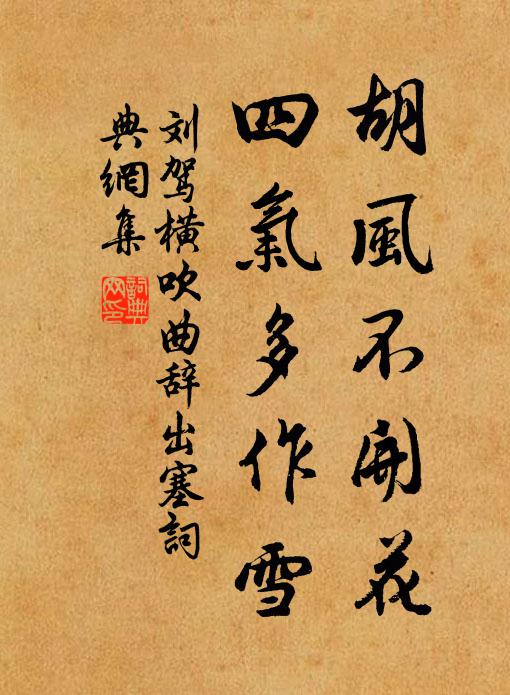 胡風不開花
四氣多作雪
刘驾橫吹曲辞出塞詞
典網集
詞典网印